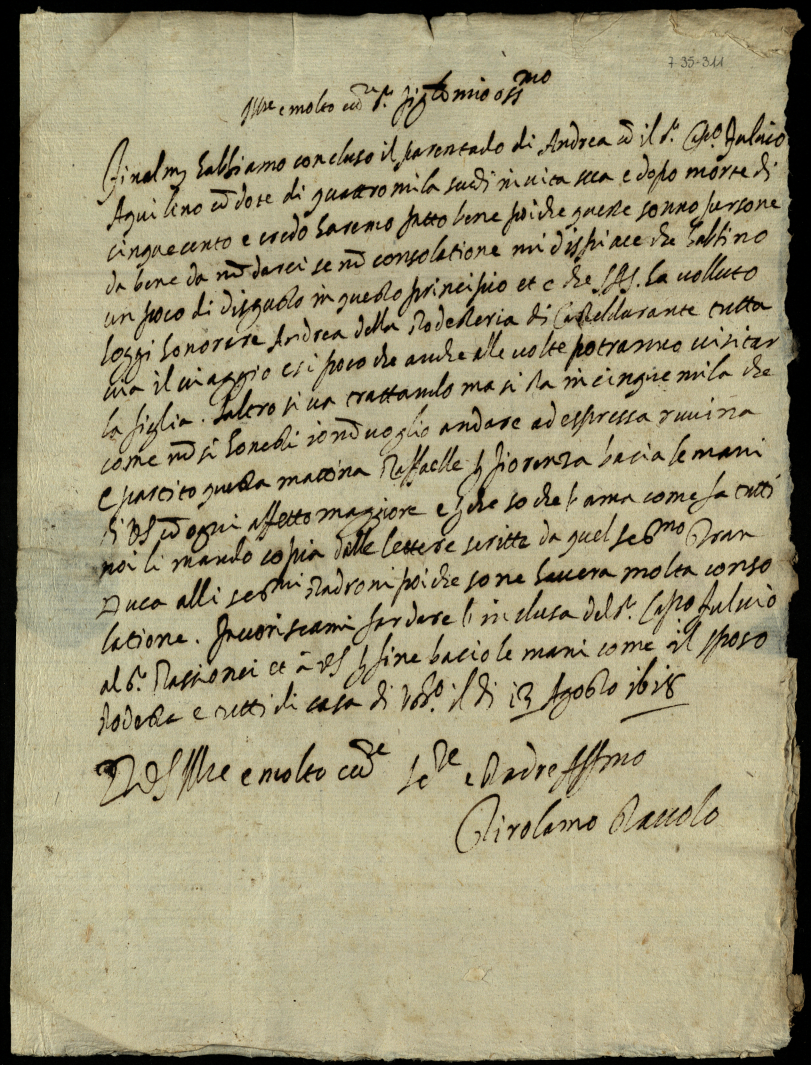 735-311
Ill.re e molto ecc.te S.r figlio mio oss.mo
Finalm.te habbiamo concluso il parentado di Andrea cō il S.r Cap.o Fulvio
Aquilino cō dote di quattromila scudi in vita sua e dopo morte di
cinquecento e credo haremo fatto bene poiche queste sonno persone
da bene da nō darci se nō consolatione mi dispiace che habbino
un poco di disgusto in questo principio et e che S.A.S. ha volluto
hoggi honorare Andrea della Podesteria di Casteldurante tutta
via il viaggio e si poco che anche alle volte potranno visitar
la figlia. L'altro si va trattando ma si sta in cinque mila che
come nō si honesti io nō voglio andare ad espressa ruvina
E partito questa mattina Raffaelle p fiorenza bacia le mani
di VS cō ogni affetto maggiore e che so che l'ama come fa tutti
noi li mando copia delle lettere scritte da quel Ser.mo Gran
Duca alli Ser.mi Padroni poiche so ne havera molta conso
latione. Favoriscami far dare l'inclusa del S.r Capo Fulvio
al S.r Passionei et à VS p fine bacio le mani come il sposo
Podestà e tutti di casa di Urb.o il di 13 Agosto 1618
Di VS Ill.re e molto ecc.te Se.re e Padre aff.mo
Girolamo Staccolo